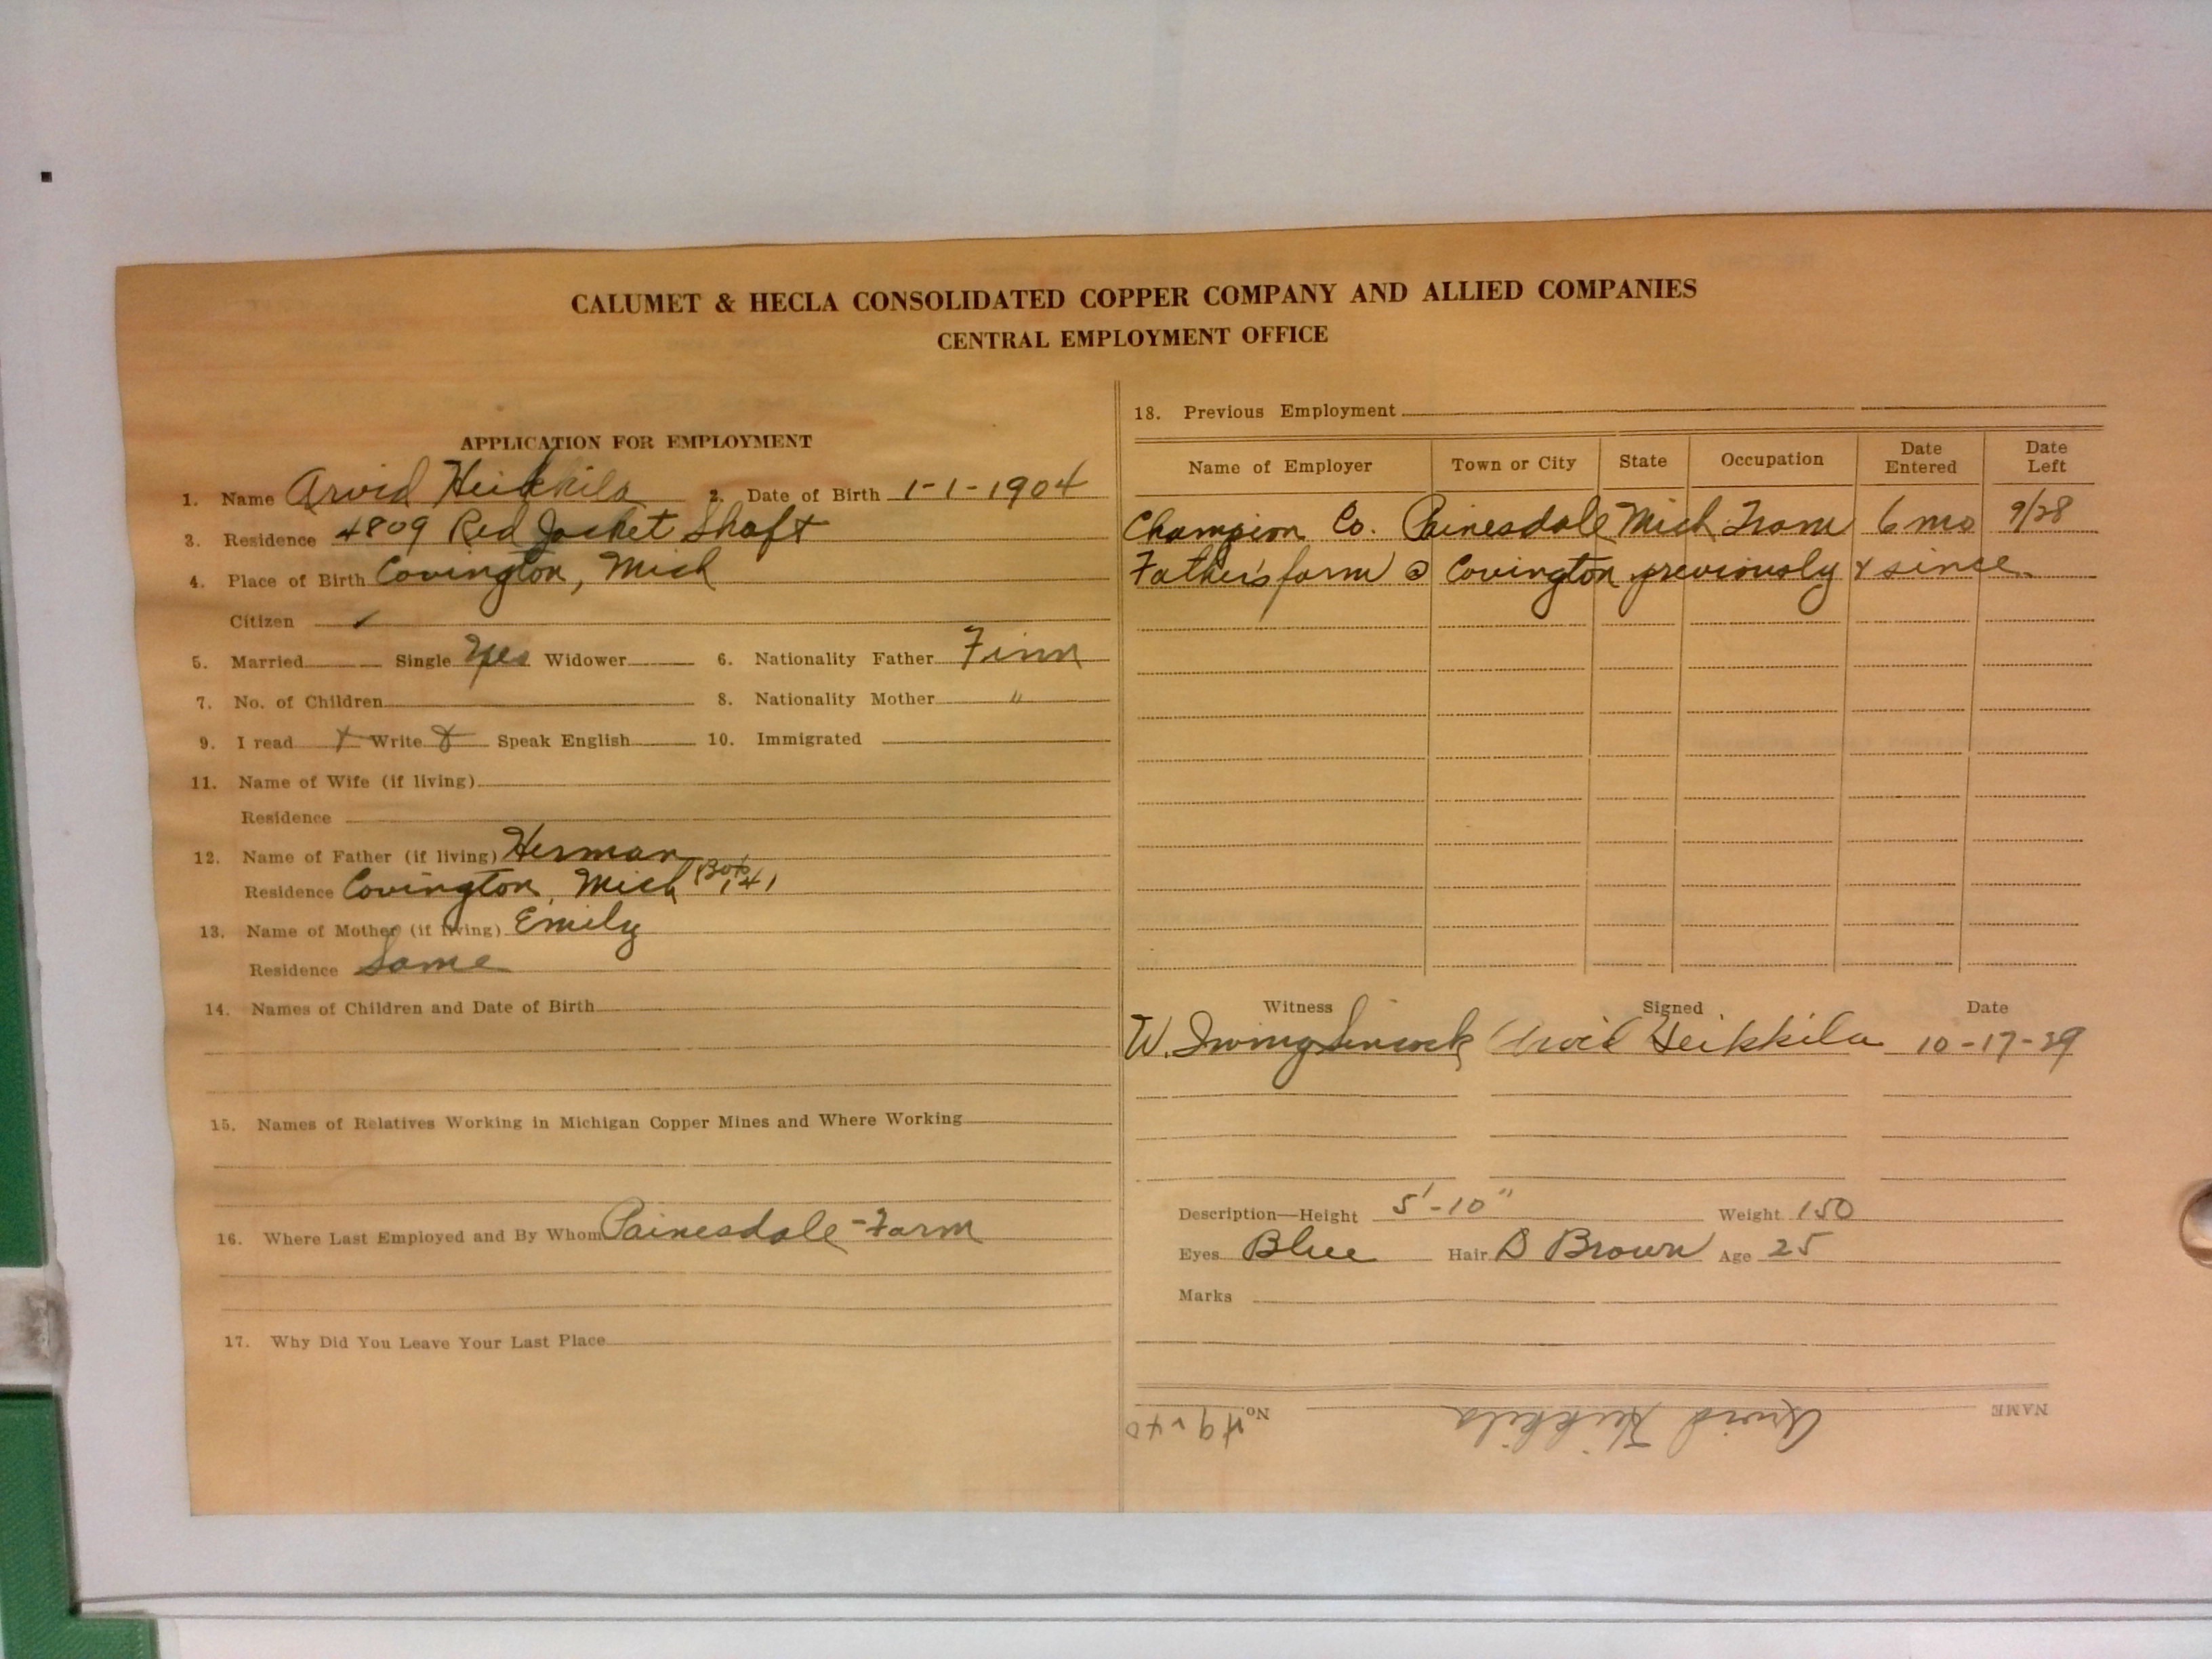 CALUMET & HECLA CONSOLIDATED COPPER COMPANY AND ALLIED COMPANIES
CENTRAL EMPLOYMENT OFFICE
APPLICATION FOR EMPLOYMENT
1. Name Arvid Heikkila 2. Date of Birth 1-1-1904
3. Residence 4809 Red Jacket Shaft
4. Place of Birth Covington, Mich
Citizen ✓
5. Married Single Yes Widower 6. Nationality Father Finn
7. No. of Children 8. Nationality Mother "
9. I read x Write x Speak English 10. Immigrated
11. Name of Wife (if living)
Residence
12. Name of Father (if living) Herman
Residence Covington, Mich Box 141
13. Name of Mother (if living) Emily
Residence Same
14. Names of Children and Date of Birth
15. Names of Relatives Working in Michigan Copper Mines and Where Working
16. Where Last Employed and By Whom Painesdale - Farm
17. Why Did You Leave Your Last Place
18. Previous Employment
Name of Employer Town or City State Occupation Date Entered Date Left
Champion Co. Painesdale Mich Tram 6 mo 9/28
Father's farm @ Covington previously & since
Witness Signed Date
W. Irving Arvid Heikkila 10-17-29
Description—Height 5'-10" Weight 150
Eyes Blue Hair D Brown Age 25
Marks
NAME Arvid Heikkila No.